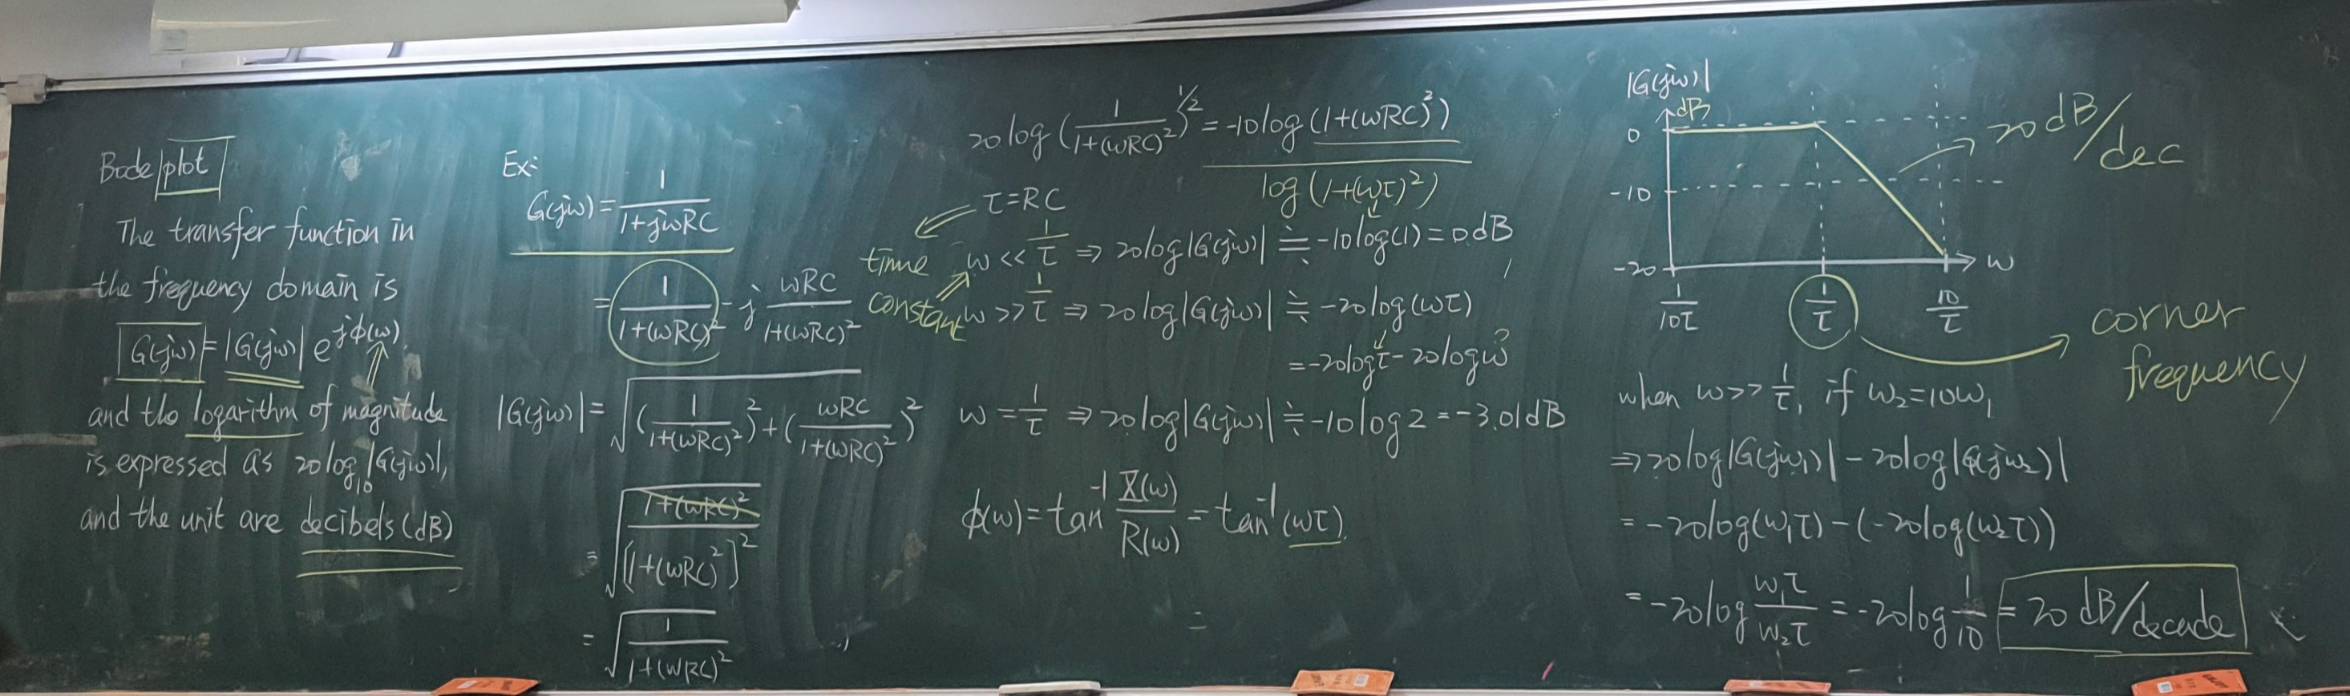 Bode plot
The transfer function in
the frequency domain is
G(jω) = |G(jω)| e^{jϕ(ω)}.
and the logarithm of magnitude
is expressed as 20log₁₀|G(jω)|,
and the unit are decibels (dB)
Ex:
G(jω) = 1/(1+jωRC)
= 1/(1+(ωRC)²) - j ωRC/(1+(ωRC)²)
|G(jω)| = √((1/(1+(ωRC)²))² + (ωRC/(1+(ωRC)²))²)
= √((1+(ωRC)²)/[1+(ωRC)²]²)
= √(1/(1+(ωRC)²))
20log (1/(1+(ωRC)²))^{1/2} = -10log (1+(ωRC)²)
log (1+(ωτ)²)
τ=RC
time constant
ω << 1/τ ⇒ 20log|G(jω)| ≒ -10log(1) = 0dB
ω >> 1/τ ⇒ 20log|G(jω)| ≒ -20log(ωτ)
= -20logτ - 20logω
ω = 1/τ ⇒ 20log|G(jω)| ≒ -10log2 = -3.01dB
ϕ(ω) = tan⁻¹ X(ω)/R(ω) = tan⁻¹(ωτ).
=
|G(jω)|
dB
0
-10
-20
1/10τ
1/τ
10/τ
ω
20dB/dec
corner
frequency
when ω>> 1/τ, if ω₂=10ω₁
⇒ 20log|G(jω₁)| - 20log|G(jω₂)|
= -20log(ω₁τ) - (-20log(ω₂τ))
= -20log ω₁τ/ω₂τ = -20log 1/10 = 20dB/decade